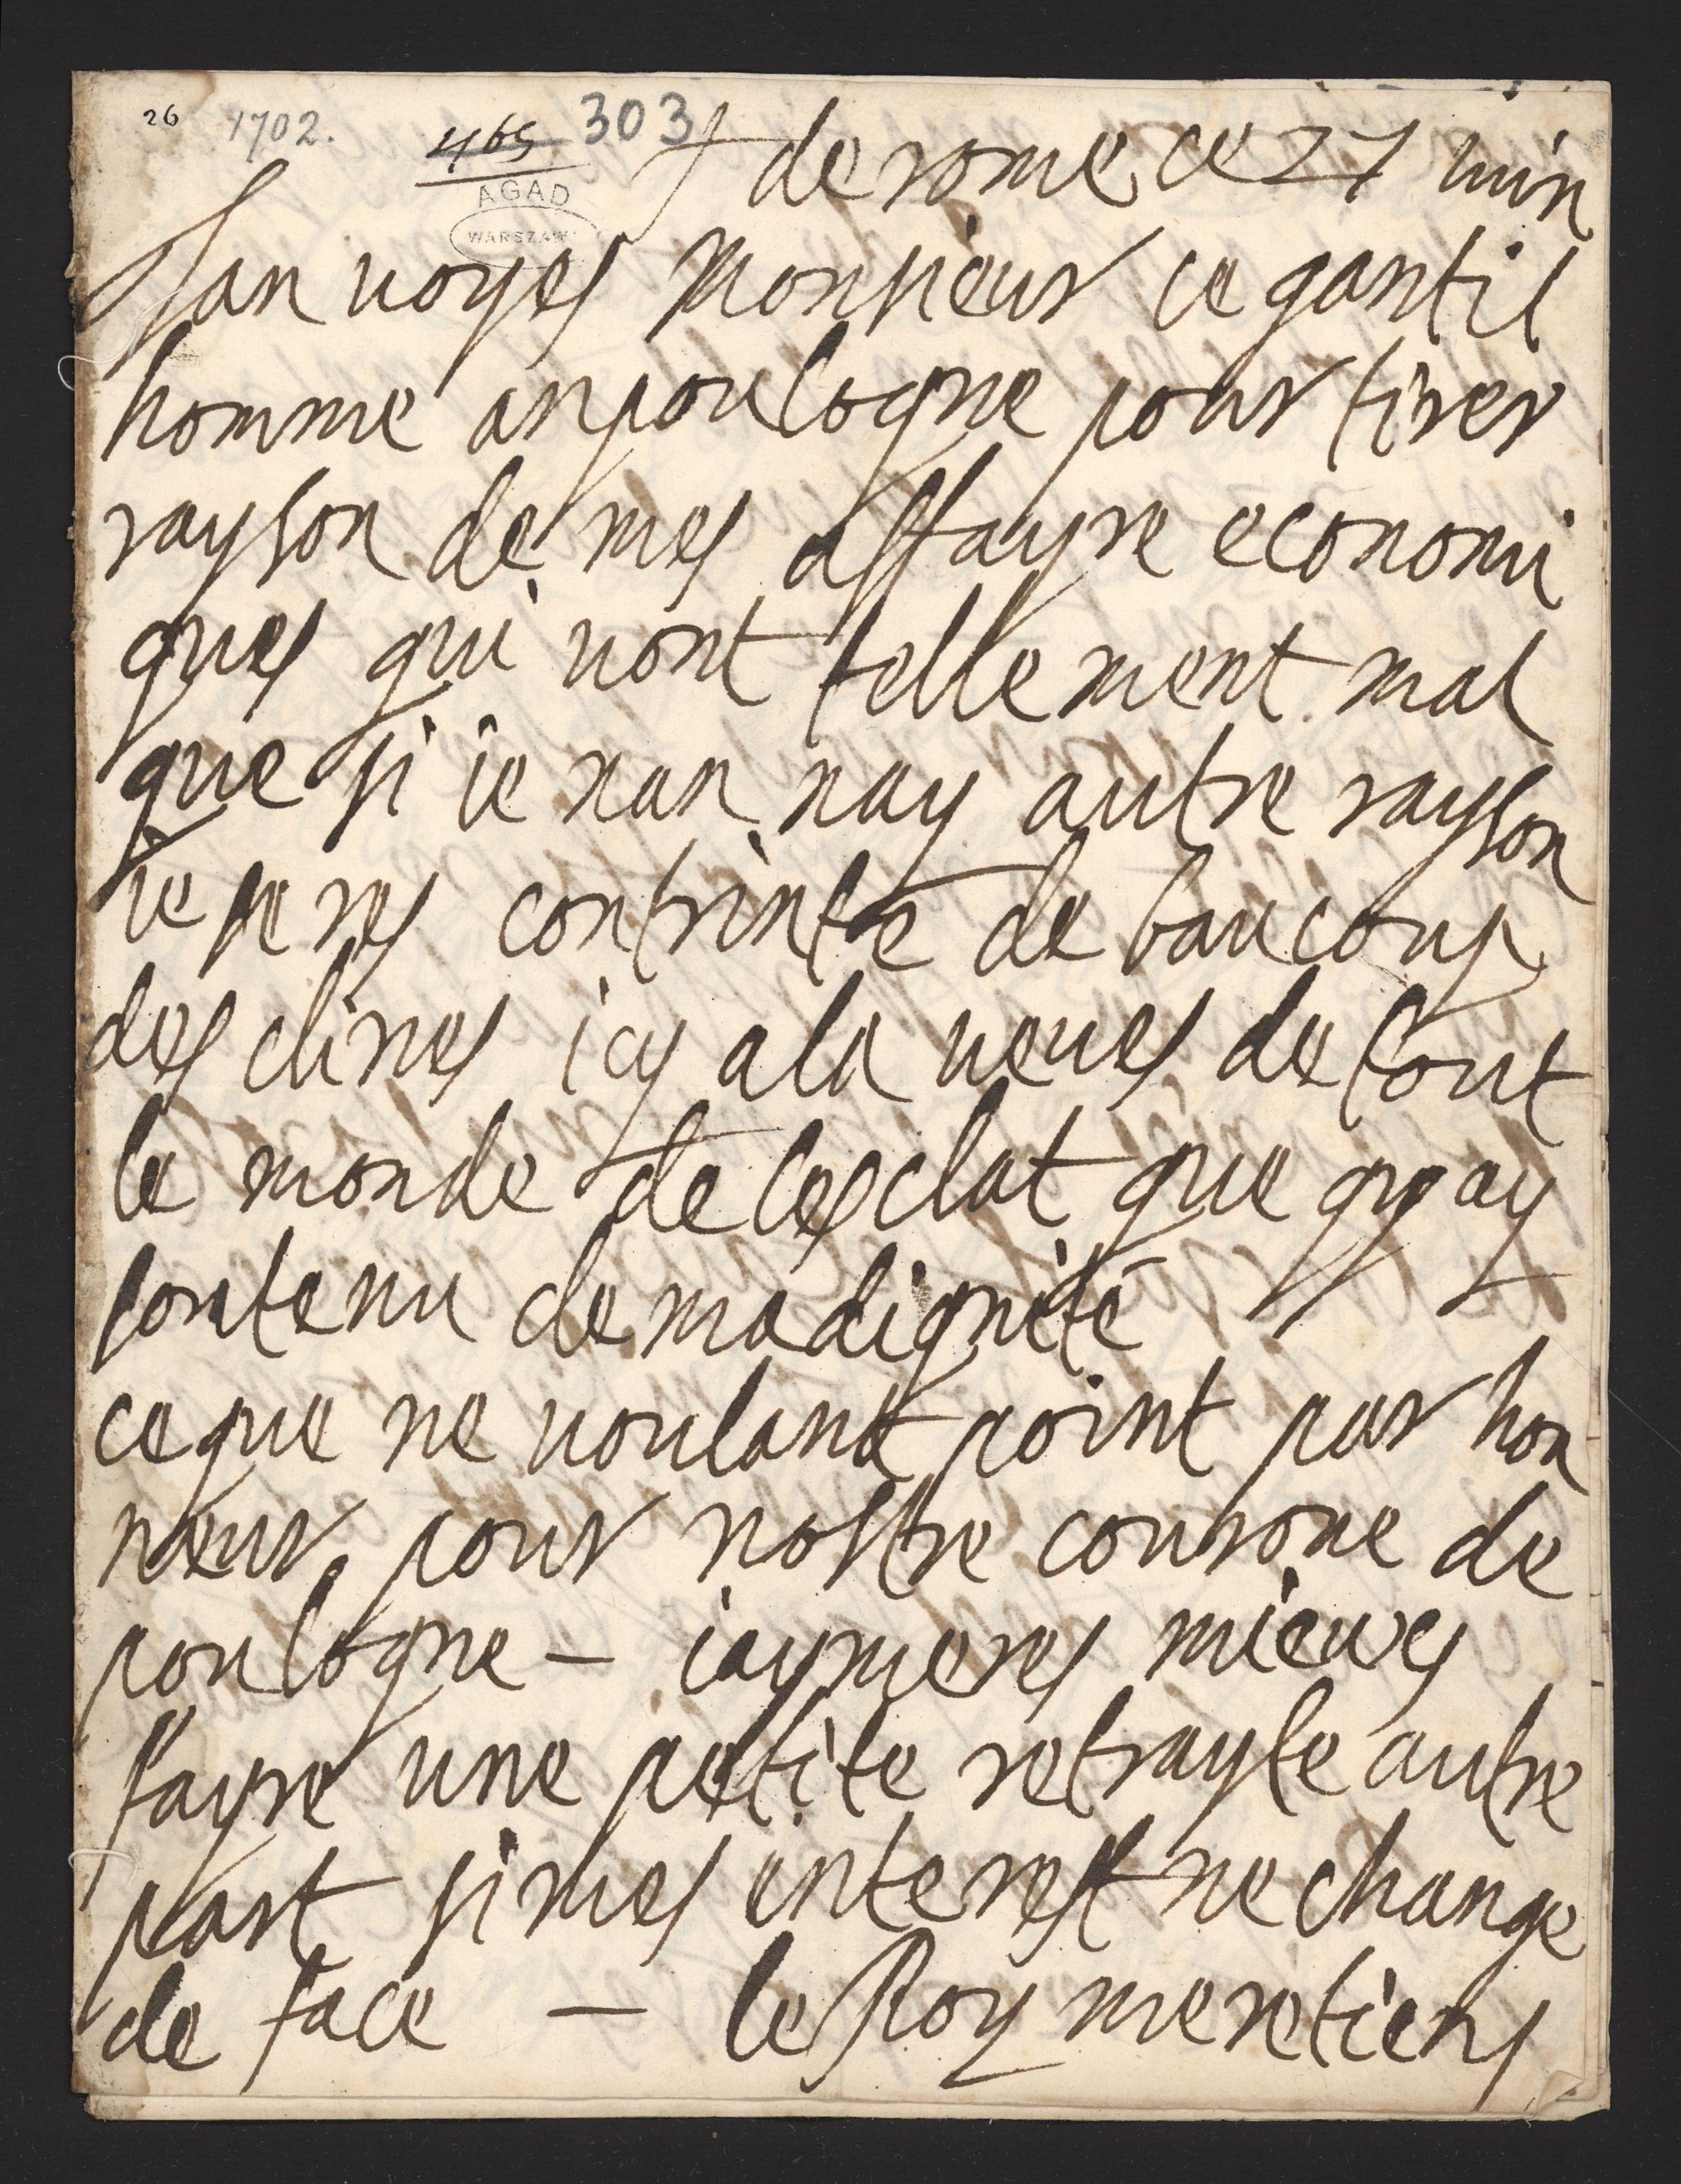 26 1702. 465 303
AGAD
WARSZAWA
de rome ce 27 iuin
Jan uoyes Monsieur ce gantil
homme anpoulogne pour tirer
rayson de mes affayre economi
ques qui uont telle ment mal
que si ie nan nay autre rayson
ie seres contrinte de baucoup
des clines icy ala ueues de tout
le monde de lesclat que jay
soutenu de madignité
ceque ne uoulant point par hon
neur pour nostre courone de
poulogne – iaymeres mieux
fayre une petite retrayte autre
part si mes interest ne change
de face – le Roy meretiens